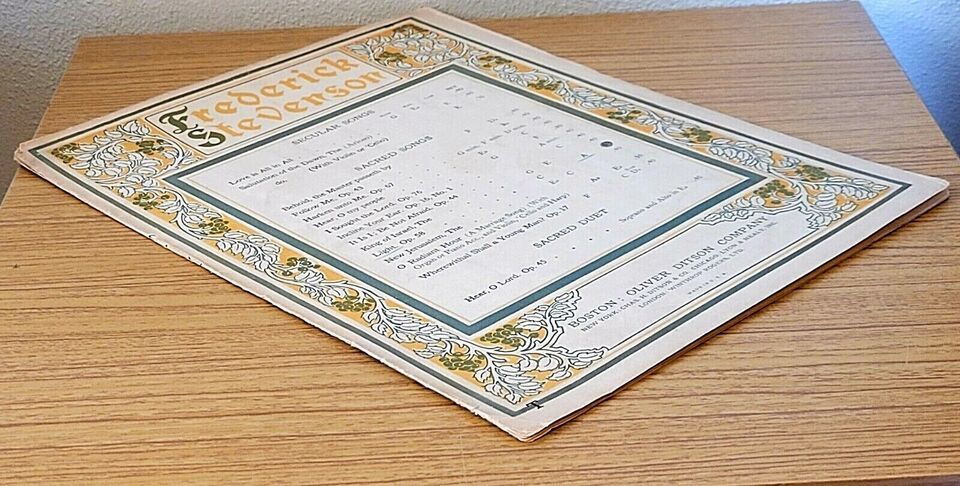 Frederick
Stevenson
SECULAR SONGS
Love is All in All
Salutation of the Dawn, The
do. (With Violin or 'Cello)
SACRED SONGS
Behold the Master passeth by
Follow Me, Op. 43
Harken unto Me, Op. 67
Hear, O my people
I Sought the Lord, Op. 76
Incline Your Ear, Op. 16, No. 1
It is I, Be not Afraid, Op. 44
King of Israel, The
Light, Op. 58
New Jerusalem, The
O Radiant Hour (A Marriage Song) (With
Organ or Piano Acc. and Violin, 'Cello and Harp)
Wherewithal Shall a Young Man? Op. 17
SACRED DUET
Hear, O Lord, Op. 45
Soprano and Alto
BOSTON: OLIVER DITSON COMPANY
NEW YORK: CHAS. H. DITSON & CO. CHICAGO: LYON & HEALY, INC.
LONDON: WINTHROP ROGERS, LTD.
MADE IN U.S.A.
T